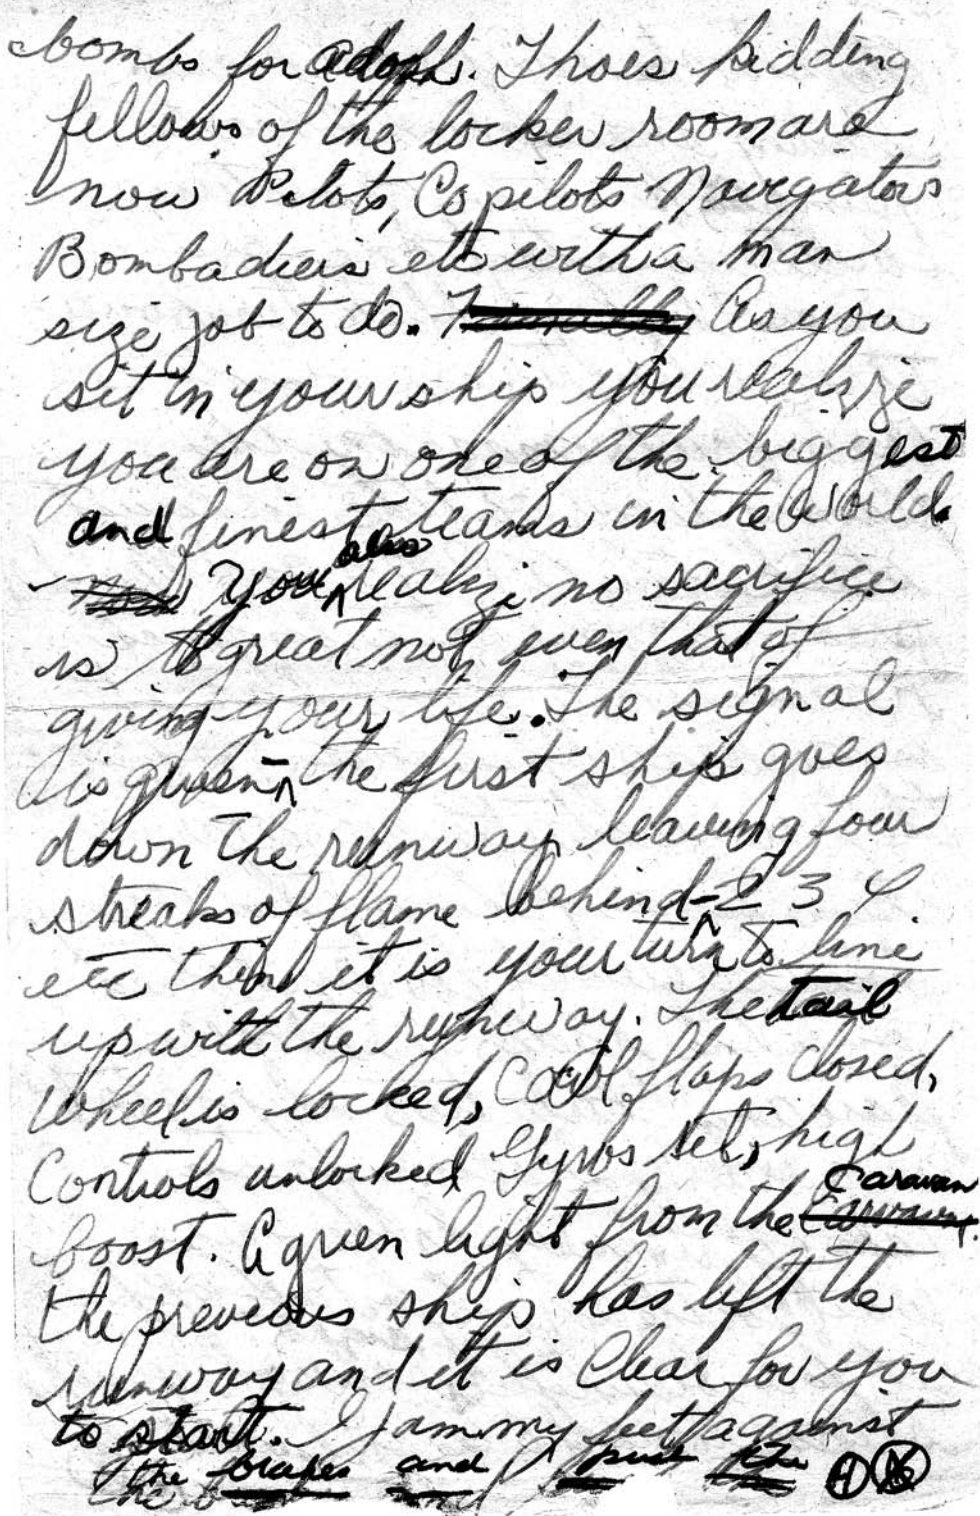 bombs for adolph. Thoes kidding
fellows of the locker room are
now Pilots, Copilots Navigators
Bombadeirs etc with a man
size job to do. As you
sit in your ship you realize
you are on one of the biggest
and finest teams in the world.
You also realize no sacrifice
is to great not even that of
giving your life. The signal
is given - the first ship goes
down the runway leaving four
streaks of flame behind - 2 3 4
etc then it is your turn to line
up with the runway. The tail
wheel is locked, Cowl flaps closed,
Controls unlocked Gyros set, high
boost. A green light from the Caravan
the previous ship has left the
runway and it is clear for you
to start. I jam my feet against
the brakes and push the